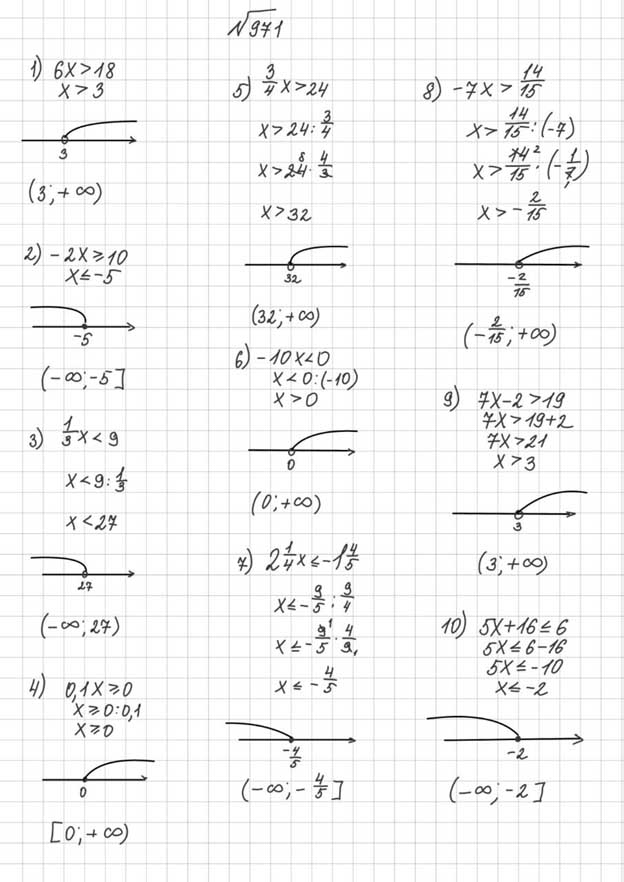 №971
1) 6x>18
x>3
3
(3;+∞)
2) -2x≥10
x≤-5
-5
(-∞;-5]
3) 1/3 x<9
x<9:1/3
x<27
27
(-∞;27)
4) 0,1x≥0
x≥0:0,1
x≥0
0
[0;+∞)
5) 3/4 x>24
x>24:3/4
x>24⁸·4/3
x>32
32
(32;+∞)
6) -10x<0
x<0:(-10)
x>0
0
(0;+∞)
7) 2 1/4 x≤-1 4/5
x≤-9/5:9/4
x≤-9¹/5·4/9₁
x≤-4/5
-4/5
(-∞;-4/5]
8) -7x>14/15
x>14/15:(-7)
x>14²/15·(-1/7₁)
x>-2/15
-2/15
(-2/15;+∞)
9) 7x-2>19
7x>19+2
7x>21
x>3
3
(3;+∞)
10) 5x+16≤6
5x≤6-16
5x≤-10
x≤-2
-2
(-∞;-2]